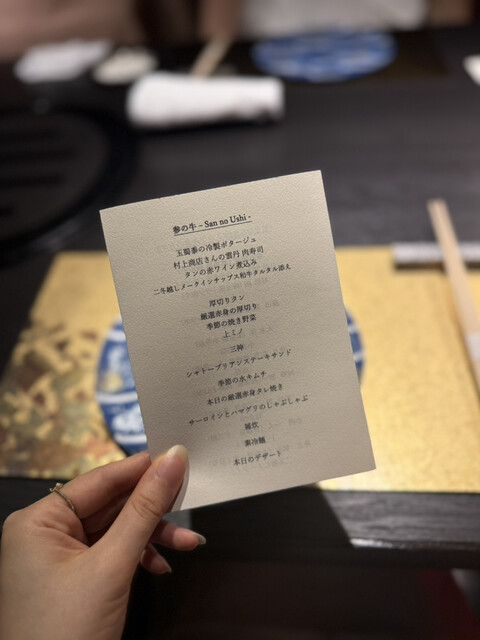 参の牛 – San no Ushi -
玉蜀黍の冷製ポタージュ
村上商店さんの雲丹 肉寿司
タンの赤ワイン煮込み
二年越しメークインチップス和牛タルタル添え
厚切りタン
厳選赤身の厚切り
季節の焼き野菜
上ミノ
三神
シャトーブリアンステーキサンド
季節の水キムチ
本日の厳選赤身タレ焼き
サーロインとハマグリのしゃぶしゃぶ
雑炊
素冷麺
本日のデザート